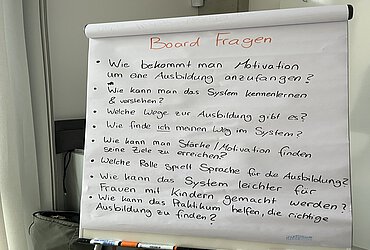 Board Fragen
• Wie bekommt man Motivation
um eine Ausbildung anzufangen?
• Wie kann man das System kennenlernen
& verstehen?
• Welche Wege zur Ausbildung gibt es?
• Wie finde ich meinen Weg im System?
Wie kann man Stärke/Motivation finden
seine Ziele zu erreichen?
• Welche Rolle spielt Sprache für die Ausbildung?
• Wie kann das System leichter für
Frauen mit Kindern gemacht werden?
• Wie kann das Praktikum helfen, die richtige
Ausbildung zu finden?